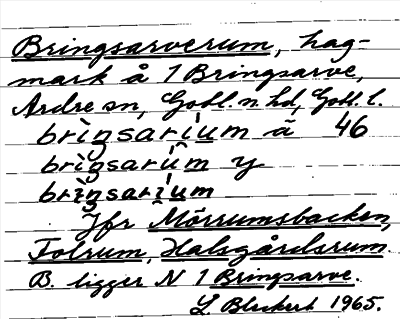 Bringsarverum, hag-
mark å 1 Bringsarve,
Ardre sn, Gotl. n. hd, Gotl. l.
brìŋsarium ä 46
brìŋsarùm y
brìŋsarium
Jfr Mörrumsbacken,
Folrum, Halsgårdsrum.
B. ligger N 1 Bringsarve.
L. Bleckert 1965.